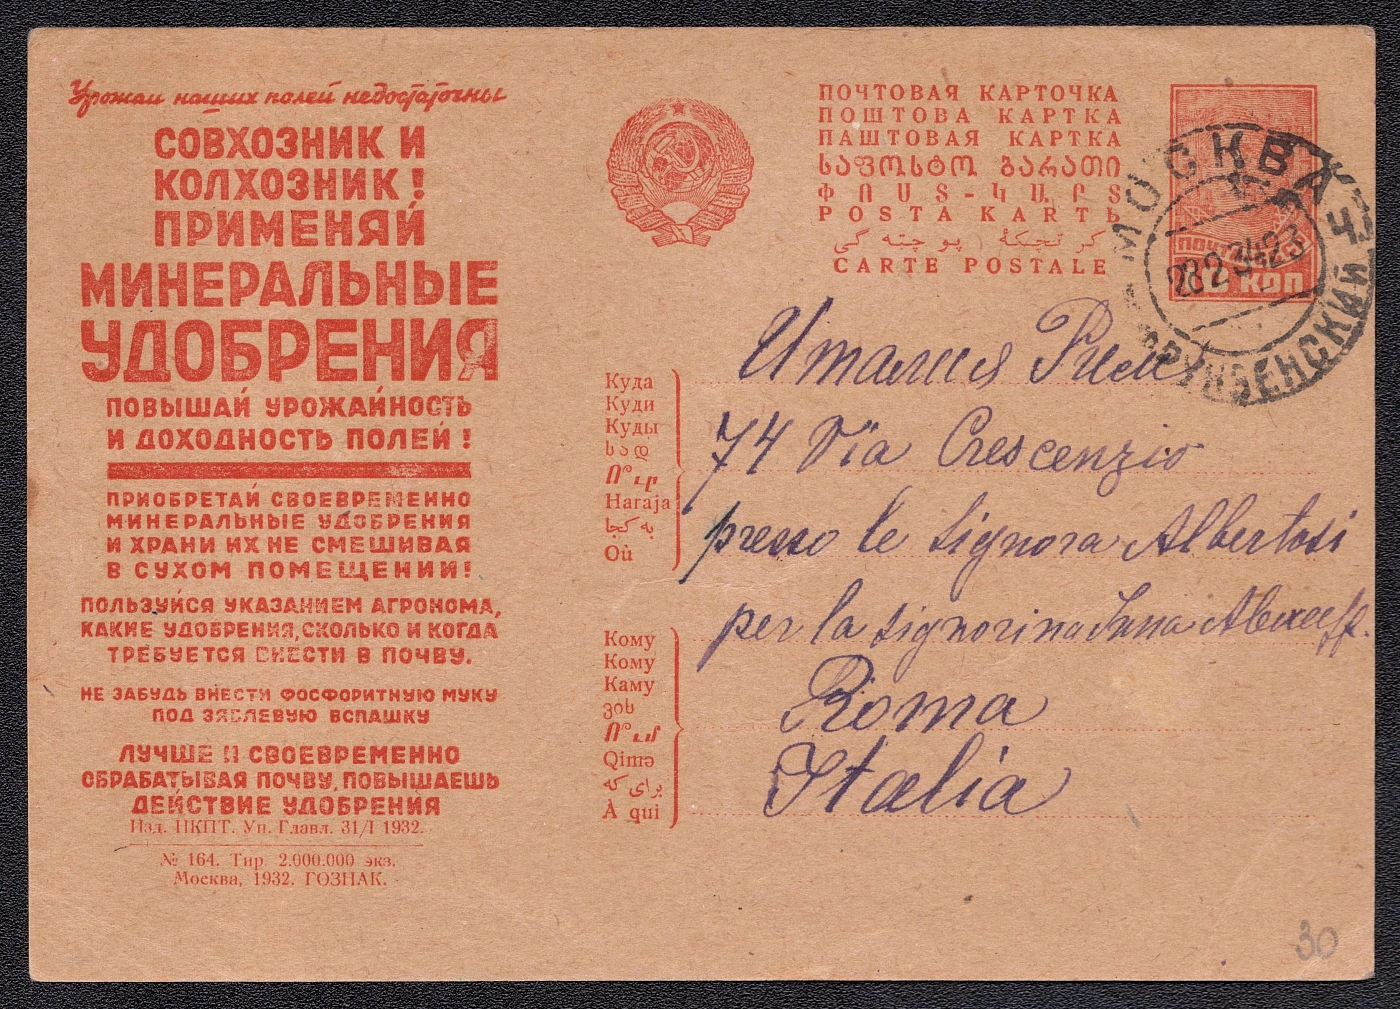 Урожаи наших полей недостаточны
СОВХОЗНИК И
КОЛХОЗНИК!
ПРИМЕНЯЙ
МИНЕРАЛЬНЫЕ
УДОБРЕНИЯ
ПОВЫШАЙ УРОЖАЙНОСТЬ
И ДОХОДНОСТЬ ПОЛЕЙ!
ПРИОБРЕТАЙ СВОЕВРЕМЕННО
МИНЕРАЛЬНЫЕ УДОБРЕНИЯ
И ХРАНИ ИХ НЕ СМЕШИВАЯ
В СУХОМ ПОМЕЩЕНИИ!
ПОЛЬЗУЙСЯ УКАЗАНИЕМ АГРОНОМА,
КАКИЕ УДОБРЕНИЯ, СКОЛЬКО И КОГДА
ТРЕБУЕТСЯ ВНЕСТИ В ПОЧВУ.
НЕ ЗАБУДЬ ВНЕСТИ ФОСФОРИТНУЮ МУКУ
ПОД ЗЯБЛЕВУЮ ВСПАШКУ
ЛУЧШЕ И СВОЕВРЕМЕННО
ОБРАБАТЫВАЯ ПОЧВУ, ПОВЫШАЕШЬ
ДЕЙСТВИЕ УДОБРЕНИЯ
Изд. НКПТ. Уп. Главл. 31/I 1932.
№ 164. Тир. 2.000.000 экз.
Москва, 1932. ГОЗНАК.
ПОЧТОВАЯ КАРТОЧКА
ПОШТОВА КАРТКА
ПАШТОВАЯ КАРТКА
ՓՈՍՏ-ԿԱՐՏ
POSTA KARTЬ
CARTE POSTALE
МОСКВА
ФРУНЗЕНСКИЙ
КОП
Куда
Куди
Куды
სად
Ո՞ւր
Haraja
به کجا
Où
Кому
Кому
Каму
ვის
Ո՞ւմ
Qimə
برای که
À qui
Италия Рим
74 Via Crescenzio
presso le signora Albertosi
per la signorina Inna Alexeeff.
Roma
Italia
30